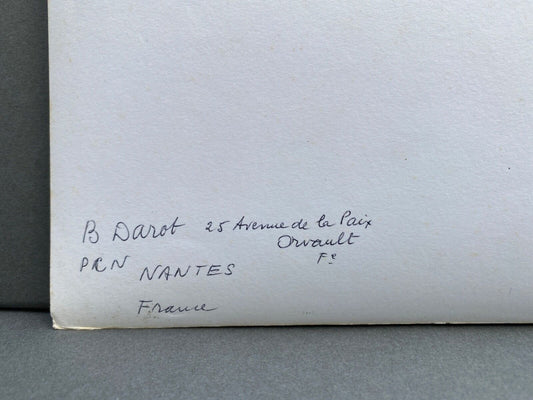 B Darot 25 Avenue de la Paix
Orvault
PRN Fe
NANTES
France